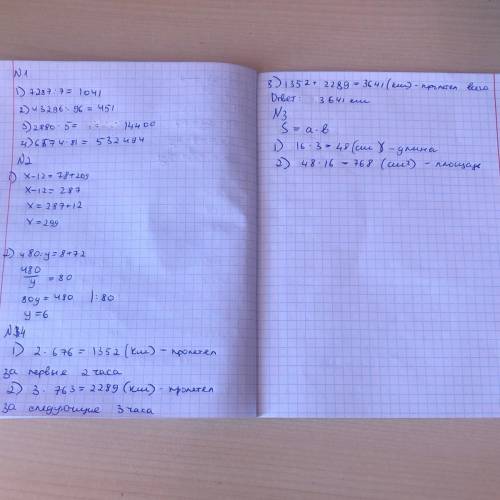 N1
1) 7287:7= 1041
2) 43296:96=451
3) 2880·5= 14400
4) 6574·81=532494
N2
1) x-12=78+209
x-12=287
x=287+12
x=299
2) 480:y=8+72
480/y =80
80y=480 |:80
y=6
N4
1) 2·676=1352(км)-пролетел
за первые 2 часа
2) 3·763=2289(км)-пролетел
за следующие 3 часа
3) 1352+2289=3641(км)-пролетел всего
Ответ: 3641 км
N3
S=a·b
1) 16·3=48(см)-длина
2) 48·16=768 (см²)-площадь